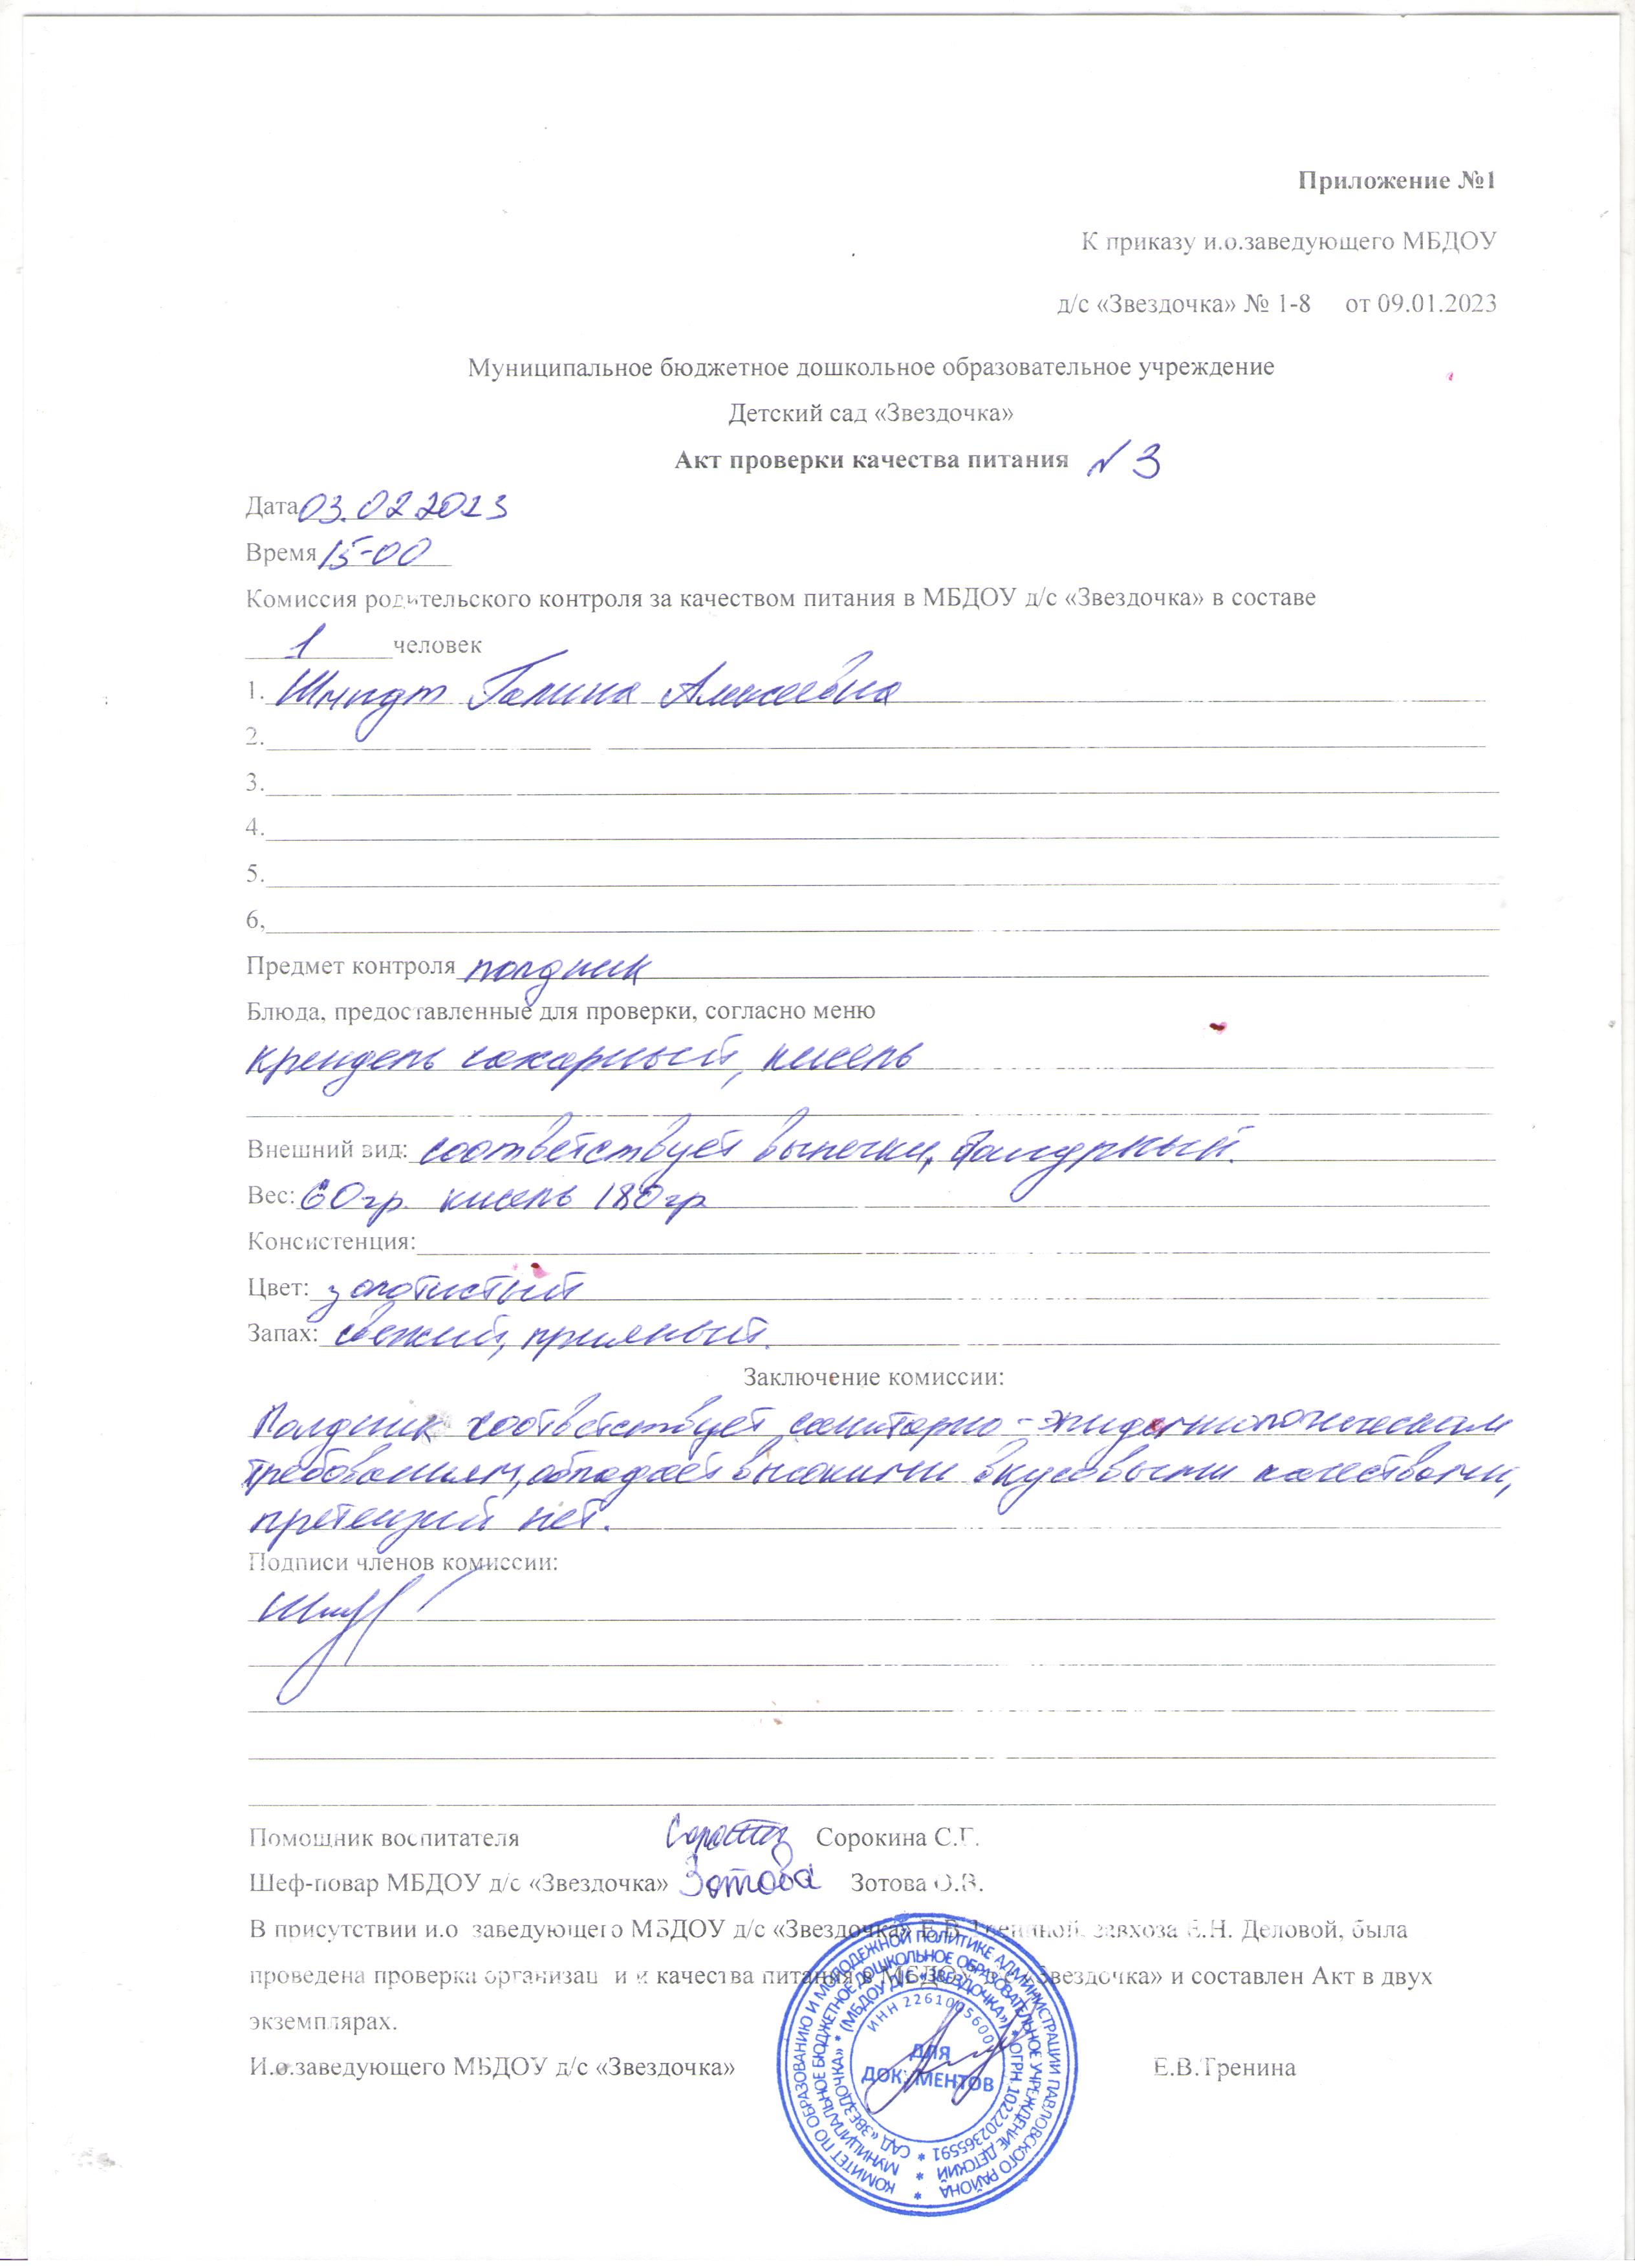 Приложение №1
К приказу и.о.заведующего МБДОУ
д/с «Звездочка» № 1-8 от 09.01.2023
Муниципальное бюджетное дошкольное образовательное учреждение
Детский сад «Звездочка»
Акт проверки качества питания №3
Дата 03.02.2023
Время 15-00
Комиссия родительского контроля за качеством питания в МБДОУ д/с «Звездочка» в составе
1 человек
1. Шмидт Галина Алексеевна
2.
3.
4.
5.
6,
Предмет контроля полдник
Блюда, предоставленные для проверки, согласно меню
крендель сахарный, кисель
Внешний вид: соответствует выпечки,
Вес: 60гр. кисель 180гр
Консистенция:
Цвет: золотистый
Запах: свежий, приятный.
Заключение комиссии:
Полдник соответствует санитарно-эпидемиологическим
требованиям, обладает высокими вкусовыми качествами,
претензий нет.
Подписи членов комиссии:
Помощник воспитателя Сорокина С.Г.
Шеф-повар МБДОУ д/с «Звездочка» Зотова Зотова О.В.
В присутствии и.о заведующего МБДОУ д/с «Звездочка» Е.В. Трениной, завхоза Е.Н. Деловой, была
проведена проверка организации и качества питания в МБДОУ д/с «Звездочка» и составлен Акт в двух
экземплярах.
И.о.заведующего МБДОУ д/с «Звездочка» Е.В.Тренина
КОМИТЕТ ПО ОБРАЗОВАНИЮ И МОЛОДЕЖНОЙ ПОЛИТИКЕ АДМИНИСТРАЦИИ ПАВЛОВСКОГО РАЙОНА *
МУНИЦИПАЛЬНОЕ БЮДЖЕТНОЕ ДОШКОЛЬНОЕ ОБРАЗОВАТЕЛЬНОЕ УЧРЕЖДЕНИЕ ДЕТСКИЙ *
САД «ЗВЕЗДОЧКА» * (МБДОУ Д/С «ЗВЕЗДОЧКА») * ОГРН 1022202365591 *
ИНН 2261005600
ДЛЯ
ДОКУМЕНТОВ